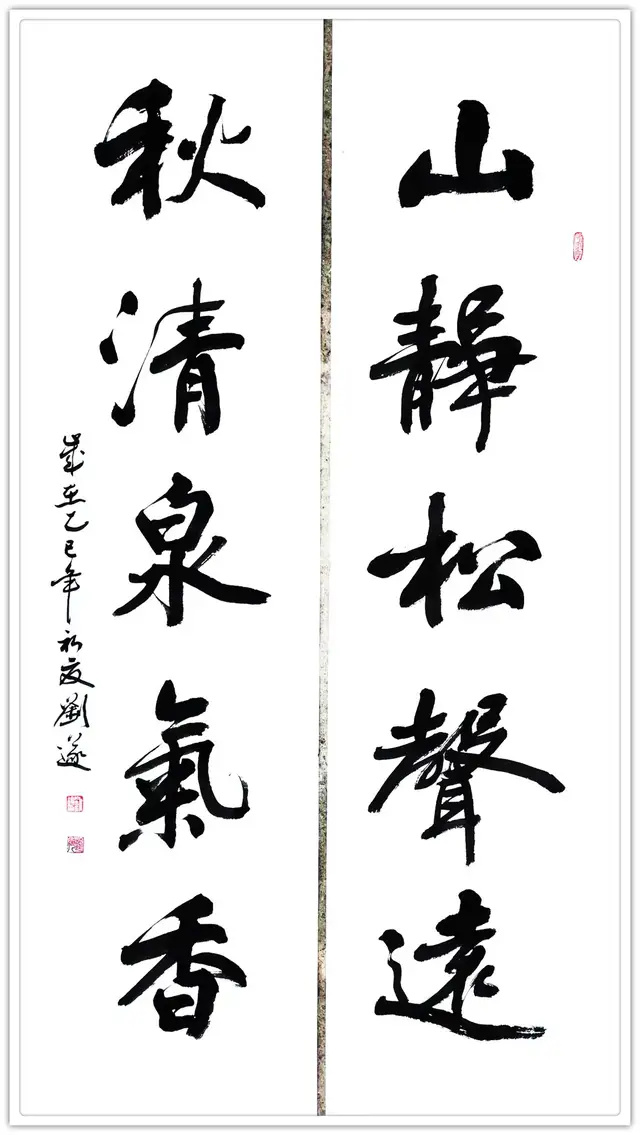 山靜松聲遠
秋清泉氣香
歲在乙巳年初夏劉遂